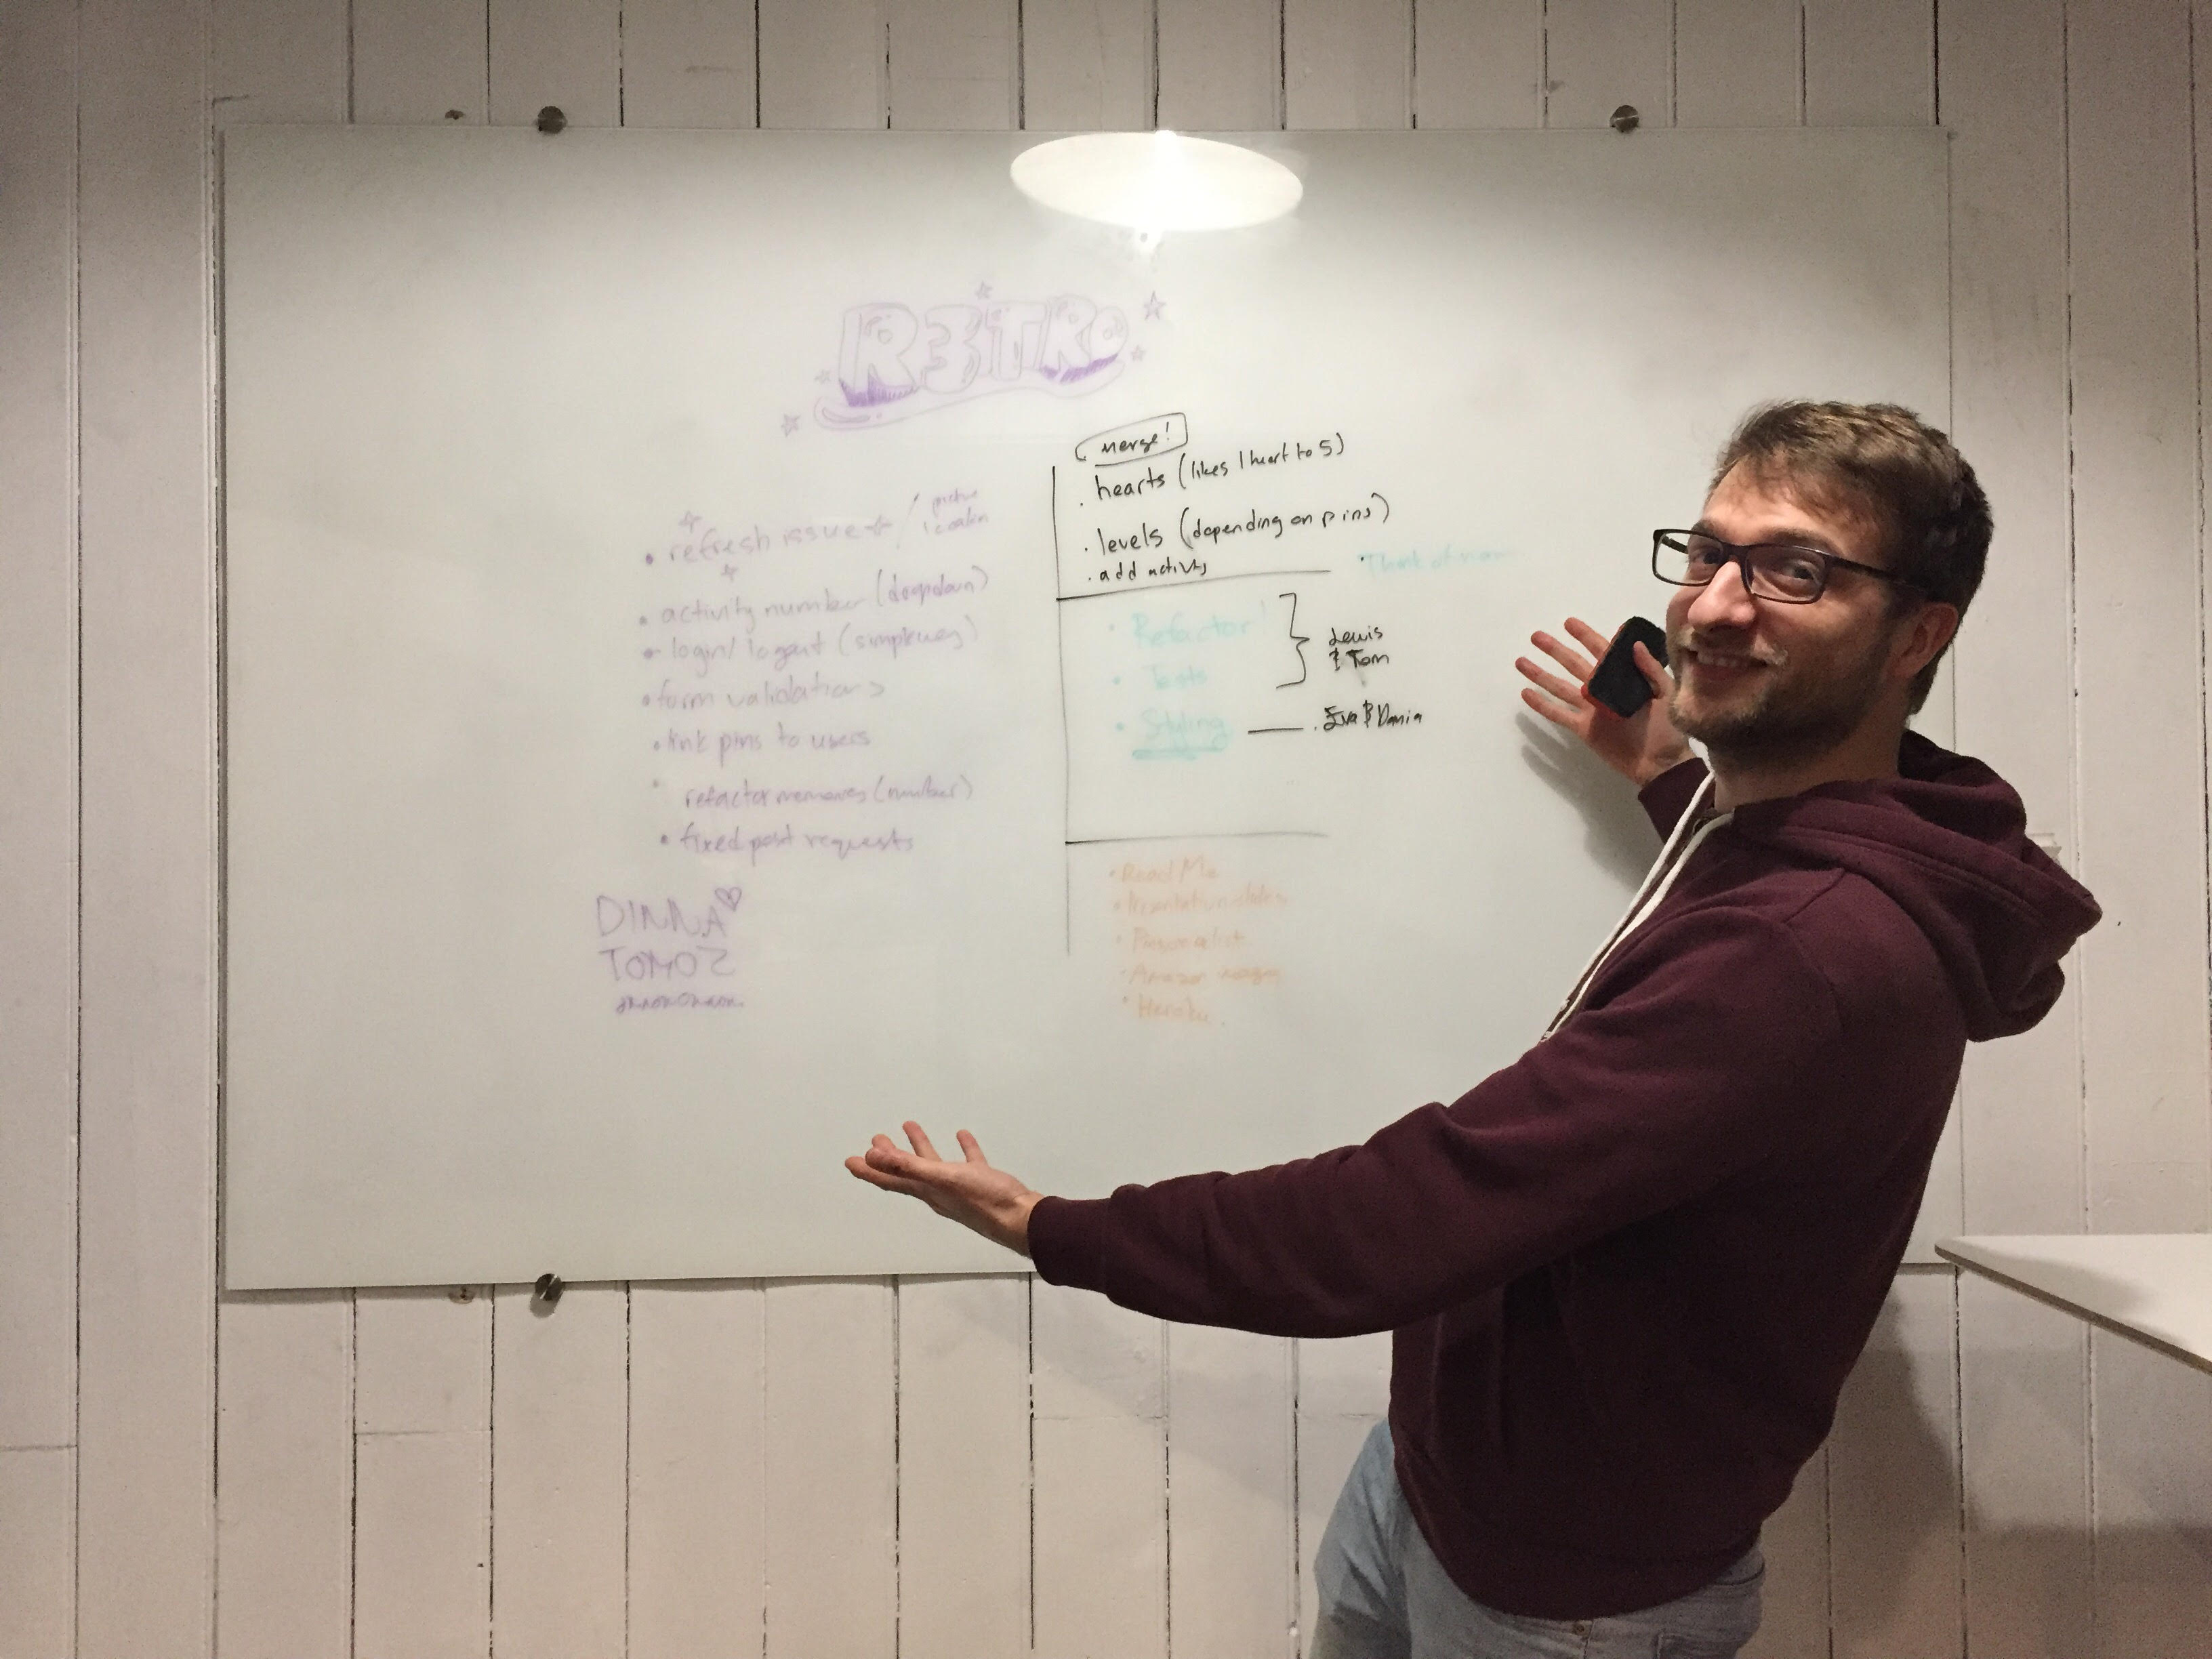 R3TRO
• refresh issue / picture
location
• activity number (dropdown)
• login/logout (simple way)
• form validations
• link pins to users
• refactor memories (number)
• fixed post requests
DINNA
TOMOZ
merge!
• hearts (likes 1 heart to 5)
• levels (depending on pins)
• add activity
• Think of
• Refactor!
• Tests
Lewis
& Tom
• Styling
• Eva & Dania
• Read Me
• Presentation slides
• Amazon
• Heroku